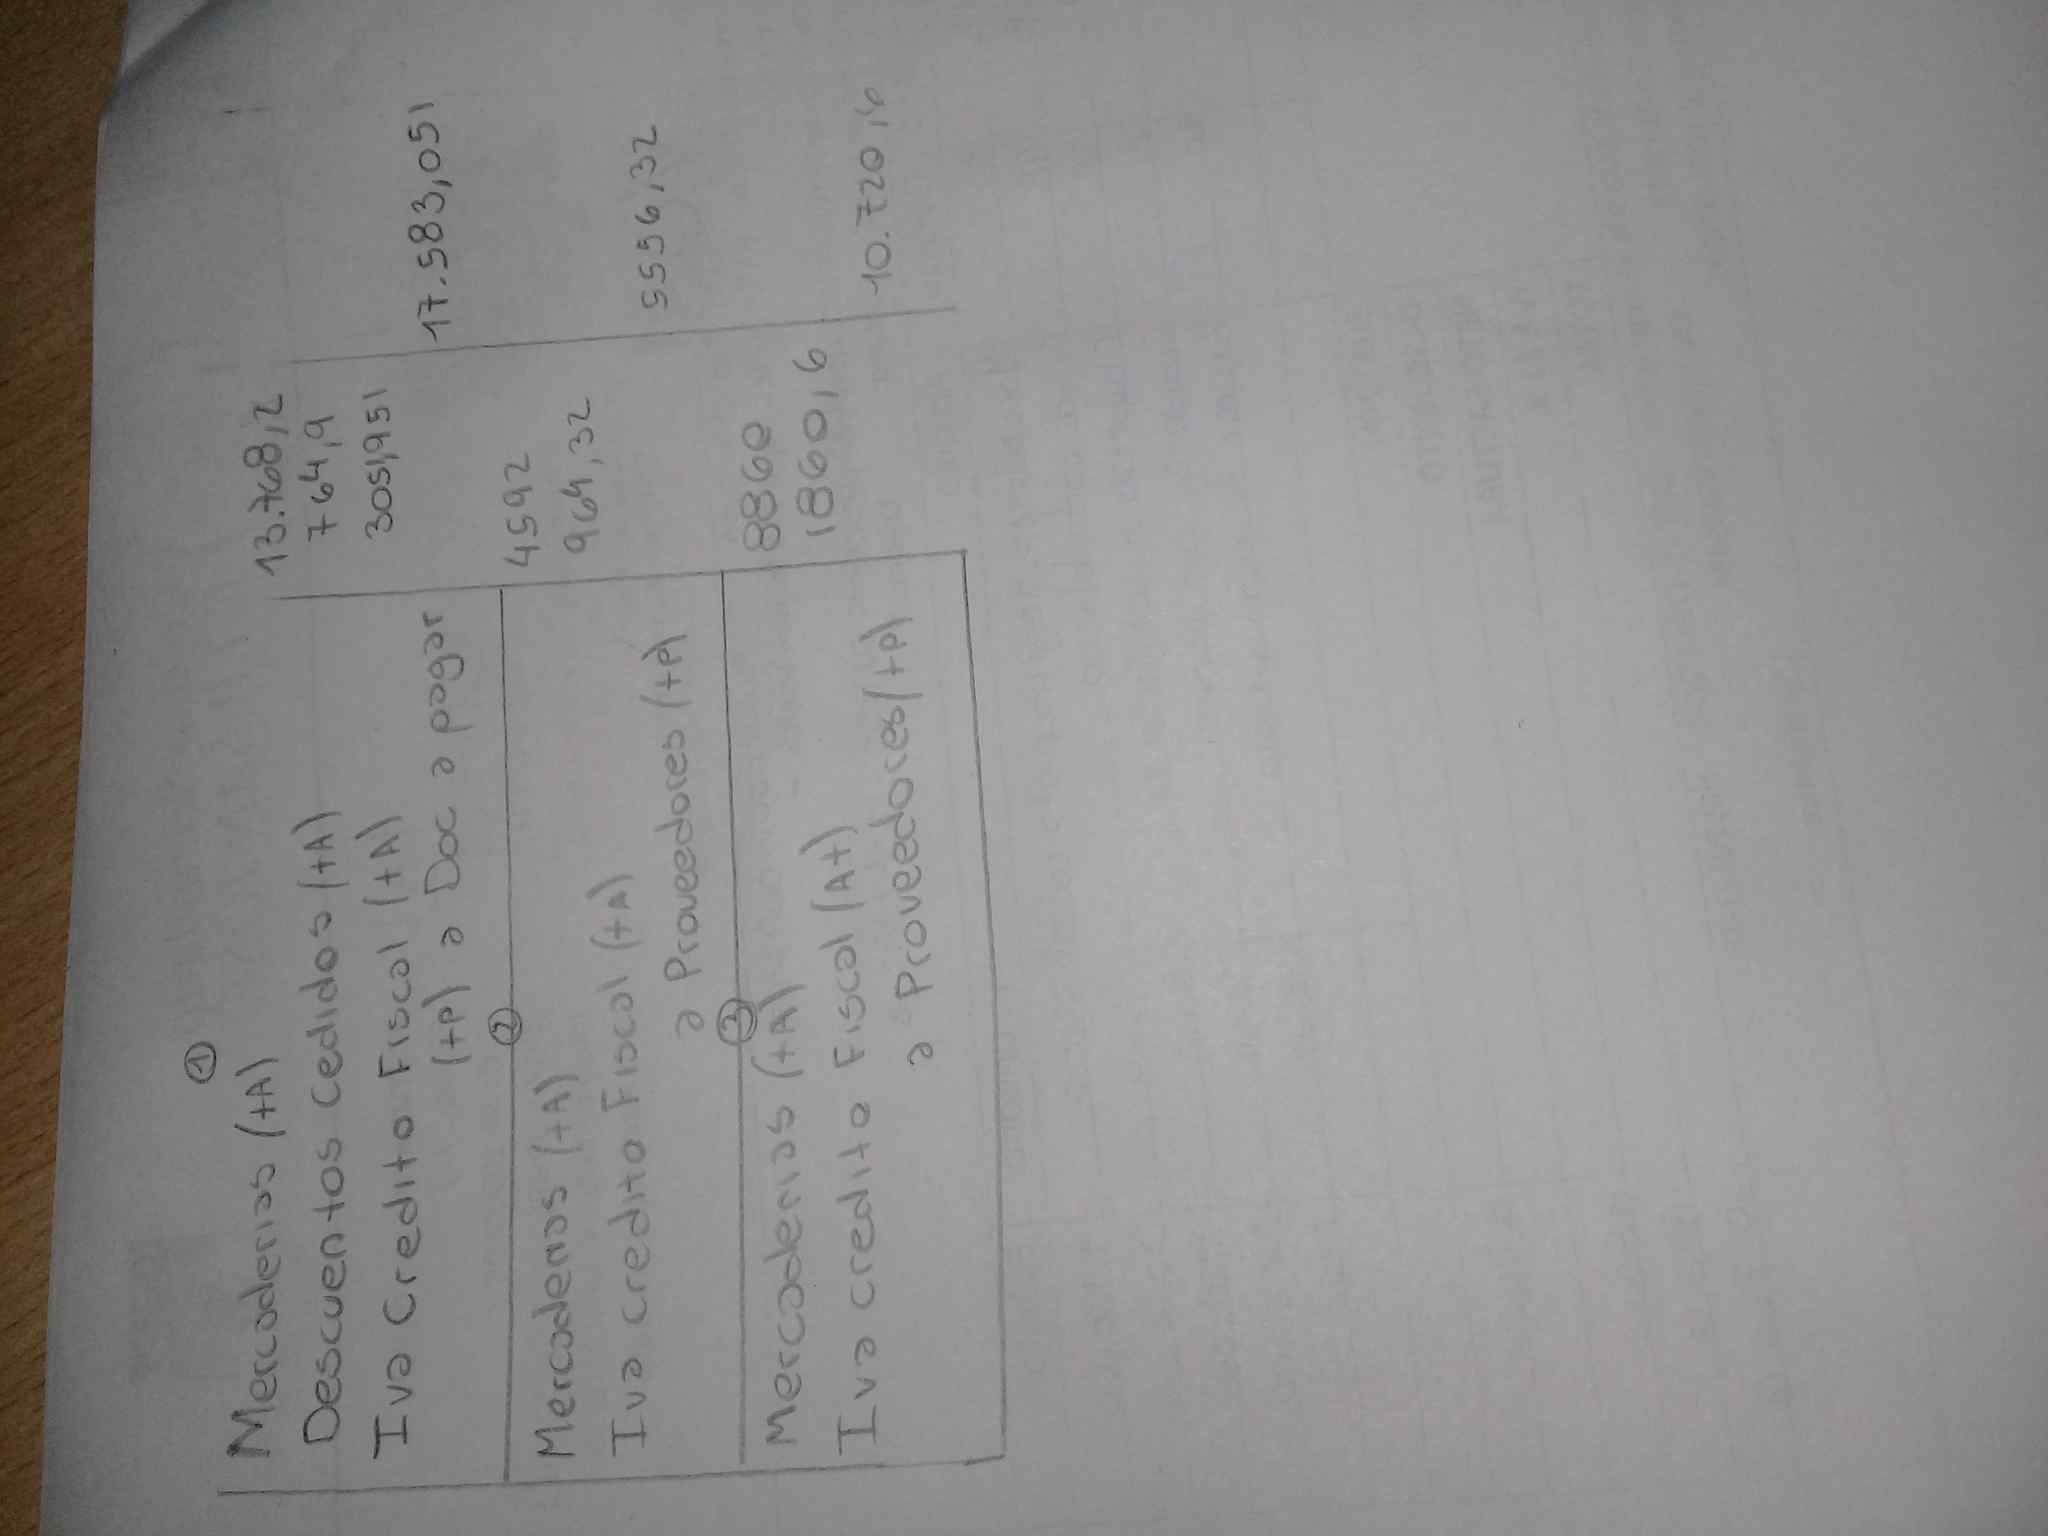 ①
Mercaderias (+A) 13.768,2
Descuentos Cedidos (+A) 764,9
Iva Credito Fiscal (+A) 3051,951
(+P) a Doc a pagar 17.583,051
②
Mercaderias (+A) 4592
Iva credito Fiscal (+A) 964,32
a Proveedores (+P) 5556,32
③
Mercaderias (+A) 8860
Iva credito Fiscal (A+) 1860,6
a Proveedores (+P) 10.720,6